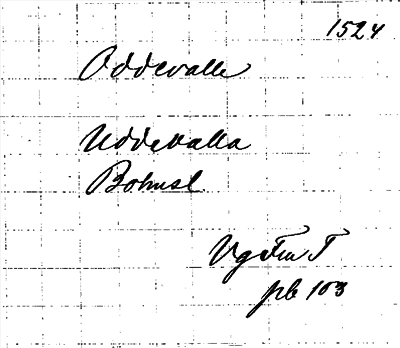 1524
Oddevalle
Uddevalla
Bohusl.
VgFm I
pb 103